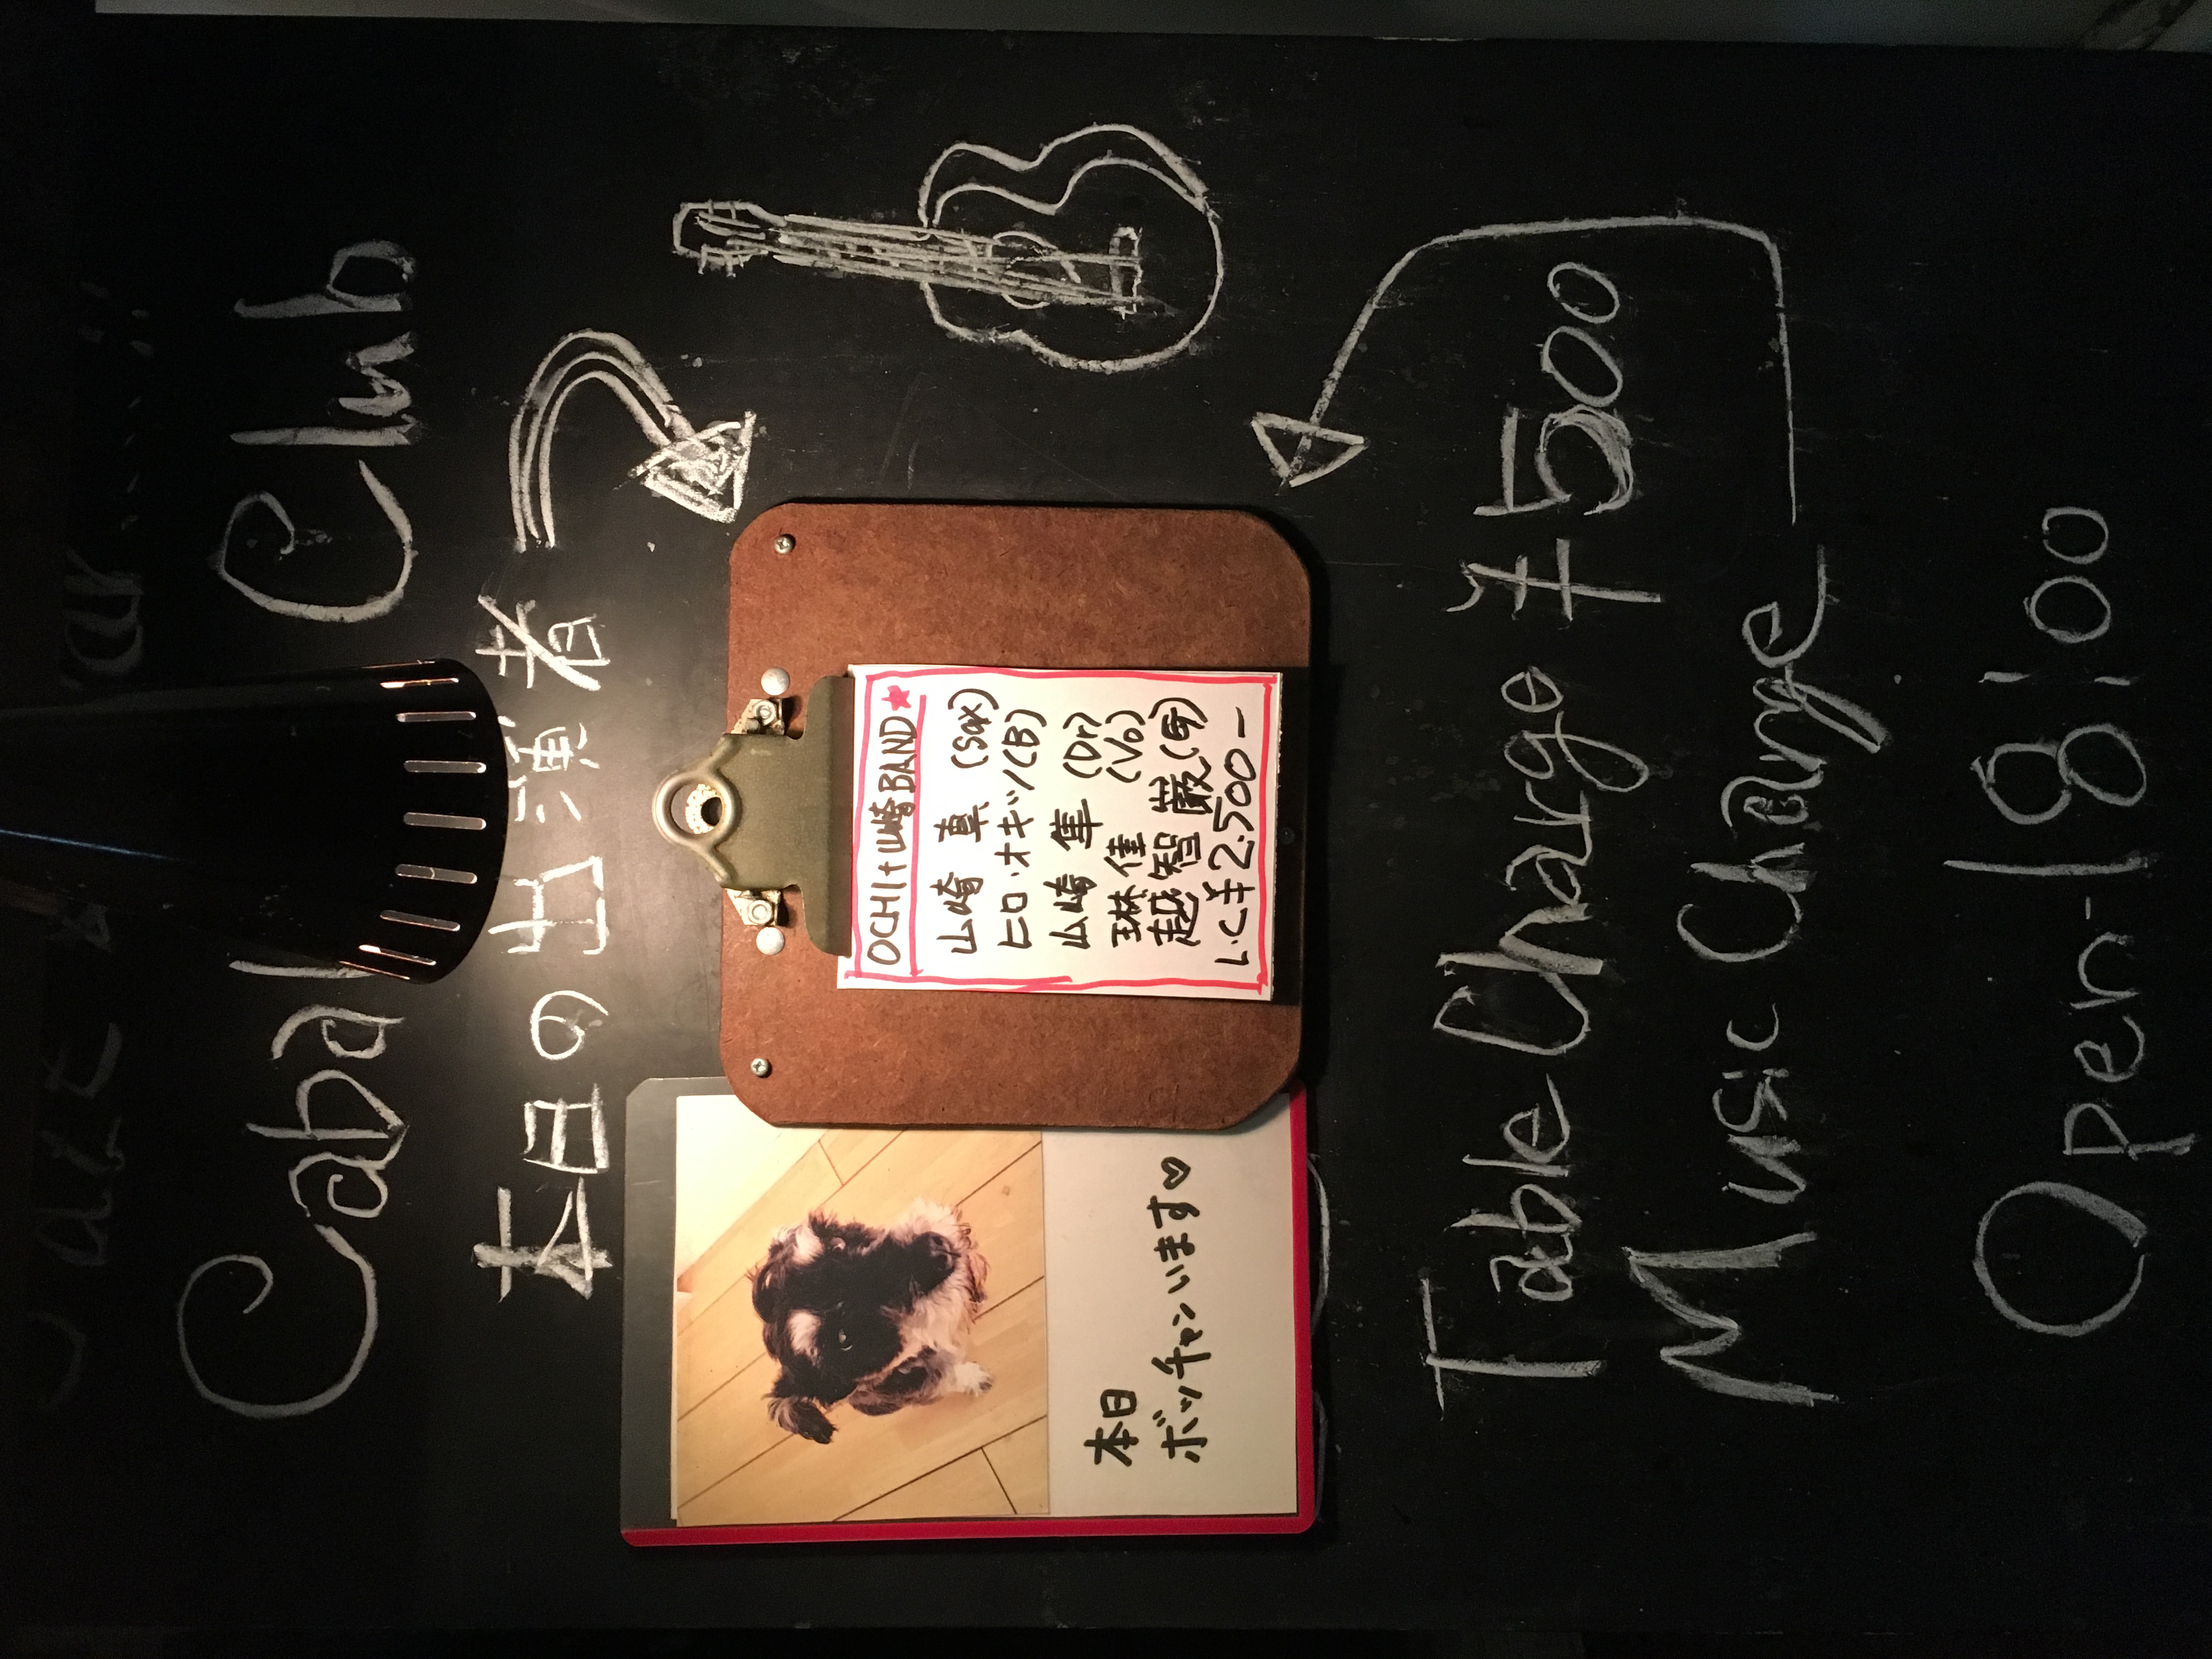 Cabal Club
本日の出演者
OCHI+山崎BAND★
山崎 真 (Sax)
ヒロ・オギソ(B)
山崎 隼 (Dr)
琳 佳 (Vo)
越智 巌(G)
L.C ¥2.500-
本日
ボッチャンいます♡
Table Charge ¥500
Music Charge
Open-18:00